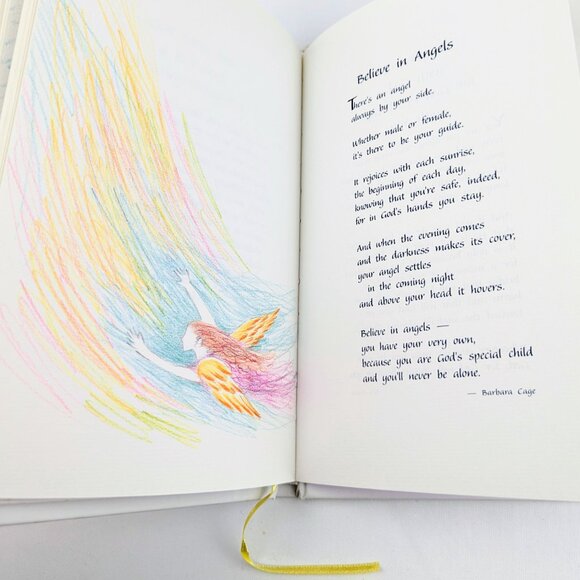 Believe in Angels
There's an angel
always by your side,
Whether male or female,
it's there to be your guide.
It rejoices with each sunrise,
the beginning of each day,
knowing that you're safe, indeed,
for in God's hands you stay.
And when the evening comes
and the darkness makes its cover,
your angel settles
in the coming night
and above your head it hovers.
Believe in angels —
you have your very own,
because you are God's special child
and you'll never be alone.
— Barbara Cage